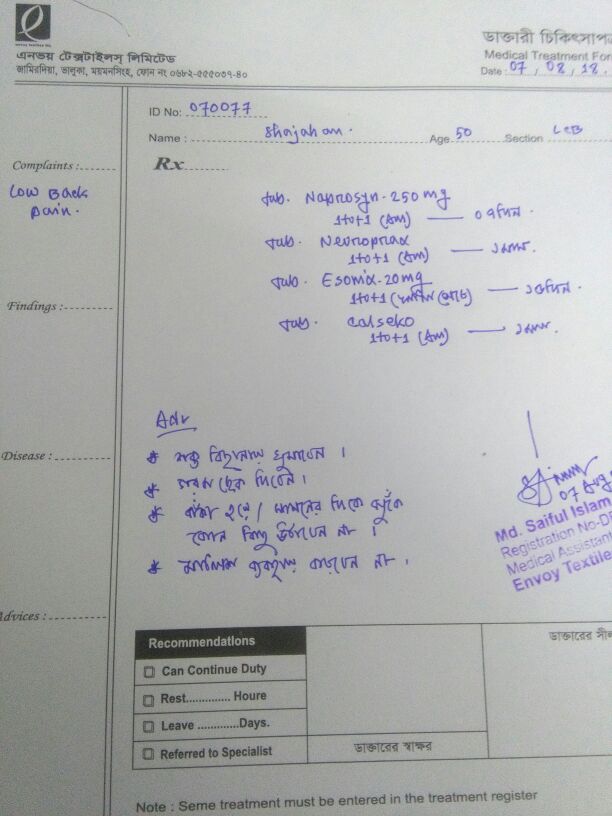 এনভয় টেক্সটাইলস্ লিমিটেড
জামিরদিয়া, ভালুকা, ময়মনসিংহ, ফোন নং ০৬৮২-৫৫৫০৩৭-৪০
ডাক্তারী চিকিৎসাপত্র
Medical Treatment For
Date: 07, 08, 18.
ID No: 070077
Name: Shajahan. Age 50 Section
Complaints:
Low Back
Pain.
Rx
Tab. Naprosyn-250mg
1+0+1 (Am) — ০৭দিন.
Tab. Neuroprax
1+0+1 (Am) — ১মাস.
Tab. Esomix-20mg
1+0+1 — ১৫দিন.
Tab. calseko
1+0+1 (Am) — ১মাস.
Findings:
Adv
* শক্ত বিছানায় ঘুমাবেন।
* গরম ছেক দিবেন।
* বাঁকা হয়ে / সামনের দিকে ঝুঁকে
কোন কিছু উঠাবেন না।
* মালিশ ব্যবহার করবেন না।
Disease:
07 Aug
Md. Saiful Islam
Registration No-D
Medical Assistant
Envoy Textile
Advices:
Recommendations
Can Continue Duty
Rest............. Houre
Leave .............Days.
Referred to Specialist
ডাক্তারের স্বাক্ষর
ডাক্তারের সীল
Note : Seme treatment must be entered in the treatment register